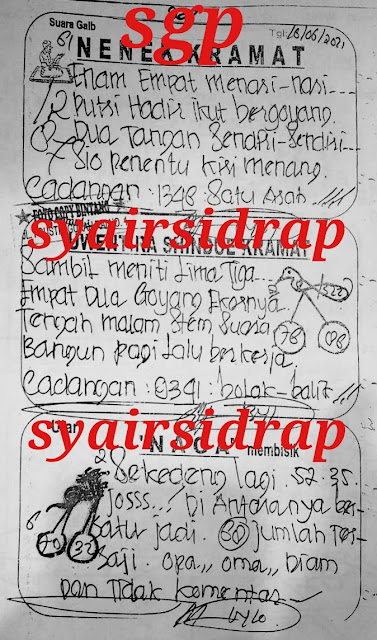 Suara Gaib
Tgl: 18/06/2021
sgp
NENEK KRAMAT
Enam Empat menari-nari---
Putri Hadir ikut bergoyang.
Dua Tangan Sendiri-Sendiri---
810 penentu kisi menang.
Cadangan : 1348 Satu Arah
FOTO COPY BINTANG
syairsidrap
SHINDUL KRAMAT
Sambil meniti Lima Tiga
Empat Dua Goyang Ekornya
Tengah malam stem suara
Bangun pagi lalu berkerja
Cadangan : 0341 : bolak-balik
syairsidrap
Ular
"NAGA" membisik
Sekedeng lagi. 52. 35.
Josss...! Di Antaranya ber-
satu jadi. jumlah ter-
saji. opa,,, oma,,, Diam
Dan Tidak komentar